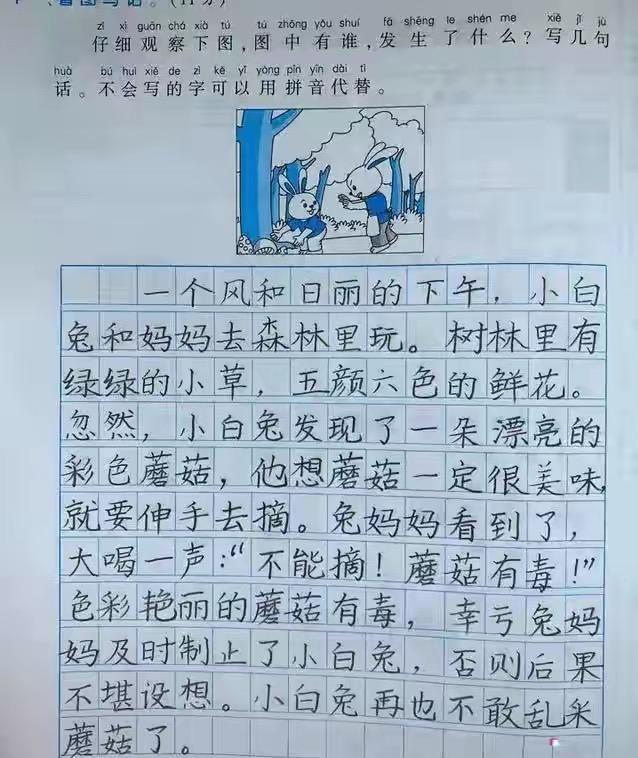 看图写话。(11分)
zǐ xì guān chá xià tú tú zhōng yǒu shuí fā shēng le shén me xiě jǐ jù
仔细观察下图,图中有谁,发生了什么?写几句
huà bú huì xiě de zì kě yǐ yòng pīn yīn dài tì
话。不会写的字可以用拼音代替。
一个风和日丽的下午，小白
兔和妈妈去森林里玩。树林里有
绿绿的小草，五颜六色的鲜花。
忽然，小白兔发现了一朵漂亮的
彩色蘑菇，他想蘑菇一定很美味，
就要伸手去摘。兔妈妈看到了，
大喝一声：“不能摘！蘑菇有毒！”
色彩艳丽的蘑菇有毒，幸亏兔妈
妈及时制止了小白兔，否则后果
不堪设想。小白兔再也不敢乱采
蘑菇了。